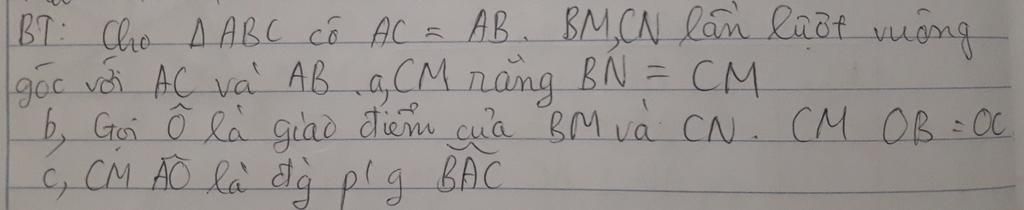 BT: Cho ΔABC có AC = AB. BM,CN lần lượt vuông
góc với AC và AB. a, CM rằng BN = CM
b, Gọi Ô là giao điểm của BM và CN. CM OB = OC
c, CM AO là đg p/g BAC